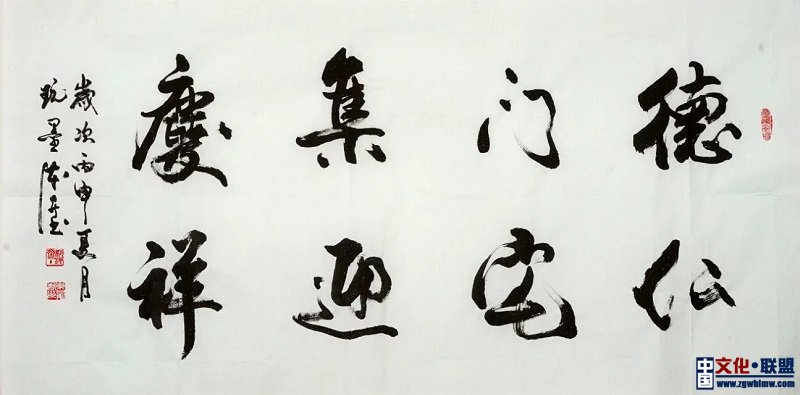 德门集慶
仁宅迎祥
歲次丙申夏月
玩墨
中国文化·联盟
www.zgwhlmw.com